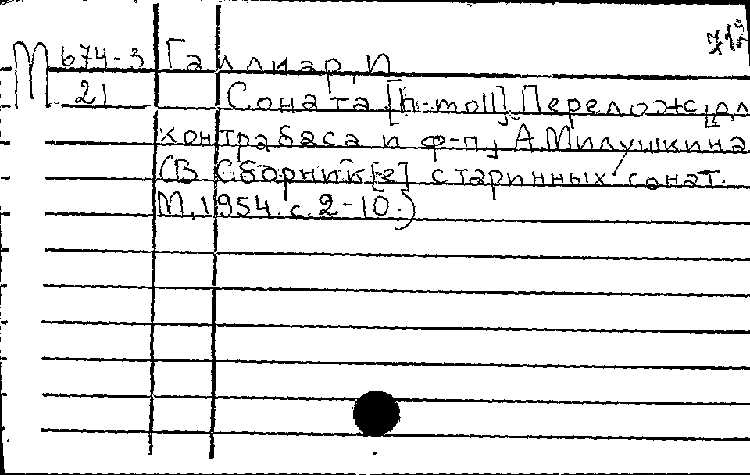 712
М 674-3 Галлиар, И.
21 Соната [h-moll]. Перелож. для
контрабаса и ф-п., А. Милушкина
(В Сборник[е] старинных сонат.
М., 1954. с. 2-10.)